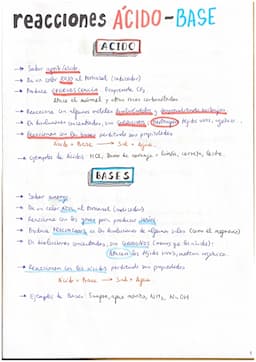 reacciones ÁCIDO-BASE
ÁCIDO
→ Sabor agrio/ácido.
→ Da un color ROJO al tornasol (indicador)
→ Produce EFERVESCENCIA. Desprende CO₂
Ataca el mármol y otras rocas carbonatadas
→ Reacciona con algunos metales
→ En disoluciones concentradas, son destruyen tejidos vivos,
→ Reaccionan con las bases perdiendo sus propiedades
Ácido + Base → Sal + Agua
→ Ejemplos de Ácidos: HCl, limón, cerveza, leche.
BASES
→ Sabor amargo
→ Da un color AZUL al tornasol (indicador)
→ Reacciona con las grasas para producir jabones
→ Produce en las disoluciones de algunas sales (como el magnesio)
→ En disoluciones concentradas, son
los tejidos vivos, materia orgánica.
→ Reaccionan con los ácidos perdiendo sus propiedades
Ácido + Base → Sal + Agua
→ Ejemplos de Bases: Sangre, NH₃, NaOH